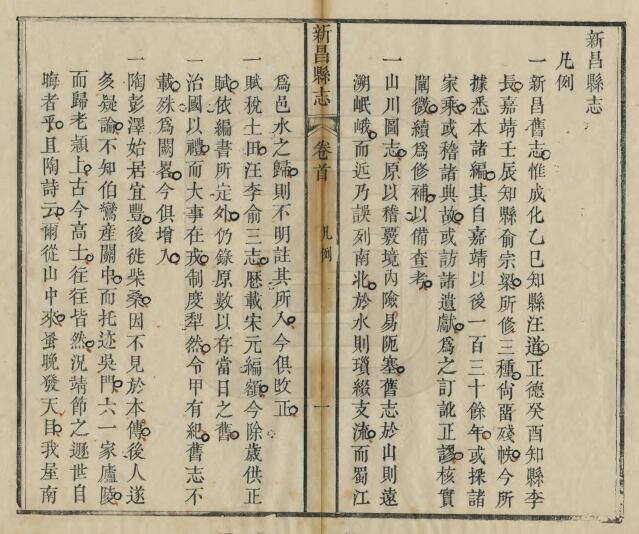 新昌縣志
凡例
一新昌舊志惟成化乙巳知縣汪道正德癸酉知縣李
長嘉靖壬辰知縣俞宗梁所修三種尙畱殘帙今所
據悉本諸編其自嘉靖以後一百三十餘年或採諸
家乘或稽諸典故或訪諸遺獻爲之訂訛正謬核實
闡微續爲修補以備查考
一山川圖志原以稽覈境內險易阨塞舊志於山則遠
溯岷峨而近乃誤列南北於水則瑣綴支流而蜀江
新昌縣志
卷首
凡例
一
爲邑水之歸則不明註其所入今俱改正
一賦稅土田汪李俞三志歷載宋元編額今除歲供正
賦依編書所定外仍錄原數以存當日之舊
一治國以禮而大事在戎制度犁然令甲有紀舊志不
載殊爲闕畧今俱增入
一陶彭澤始居宜豐後徙柴桑因不見於本傳後人遂
多疑論不知伯鸞產關中而托迹吳門六一家廬陵
而歸老潁上古今高士往往皆然況靖節之遯世自
晦者乎且陶詩云爾從山中來蚤晚發天目我屋南